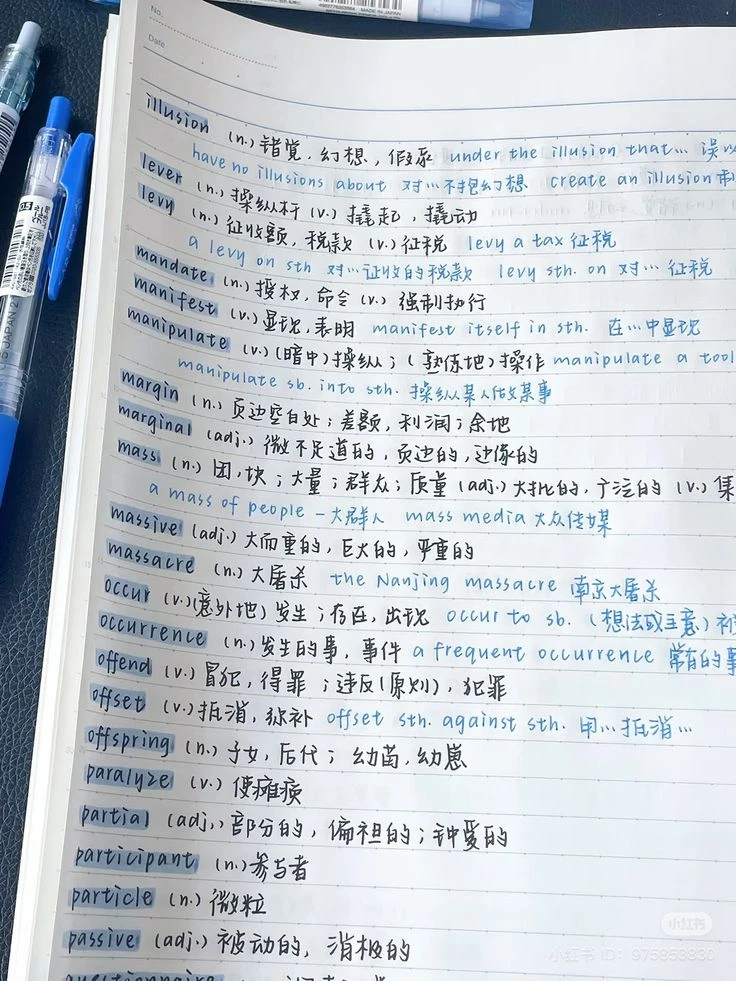 MADE IN JAPAN
No.
Date
illusion (n.) 错觉，幻想，假象 under the illusion that… 误以
have no illusions about 对…不抱幻想 create an illusion 制
lever (n.) 操纵杆 (v.) 撬起，撬动
levy (n.) 征收额，税款 (v.) 征税 levy a tax 征税
a levy on sth 对…证收的税款 levy sth. on 对… 征税
mandate (n.) 授权，命令 (v.) 强制执行
manifest (v.) 显现，表明 manifest itself in sth. 在…中显现
manipulate (v.) (暗中)操纵；(熟练地)操作 manipulate a tool
manipulate sb. into sth. 操纵某人做某事
margin (n.) 页边空白处；差额，利润；余地
marginal (adj.) 微不足道的，页边的，边缘的
mass (n.) 团，块；大量；群众；质量 (adj.) 大批的，广泛的 (v.) 集
a mass of people 一大群人 mass media 大众传媒
massive (adj.) 大而重的，巨大的，严重的
massacre (n.) 大屠杀 the Nanjing massacre 南京大屠杀
occur (v.) (意外地) 发生；存在，出现 occur to sb. (想法或主意) 被
occurrence (n.) 发生的事，事件 a frequent occurrence 常有的事
offend (v.) 冒犯，得罪；违反(原则)，犯罪
offset (v.) 抵消，弥补 offset sth. against sth. 用…抵消…
offspring (n.) 子女，后代；幼苗，幼崽
paralyze (v.) 使瘫痪
partial (adj.) 部分的，偏袒的；钟爱的
participant (n.) 参与者
particle (n.) 微粒
passive (adj.) 被动的，消极的
questionnaire
小红书
小红书 ID: 975853830